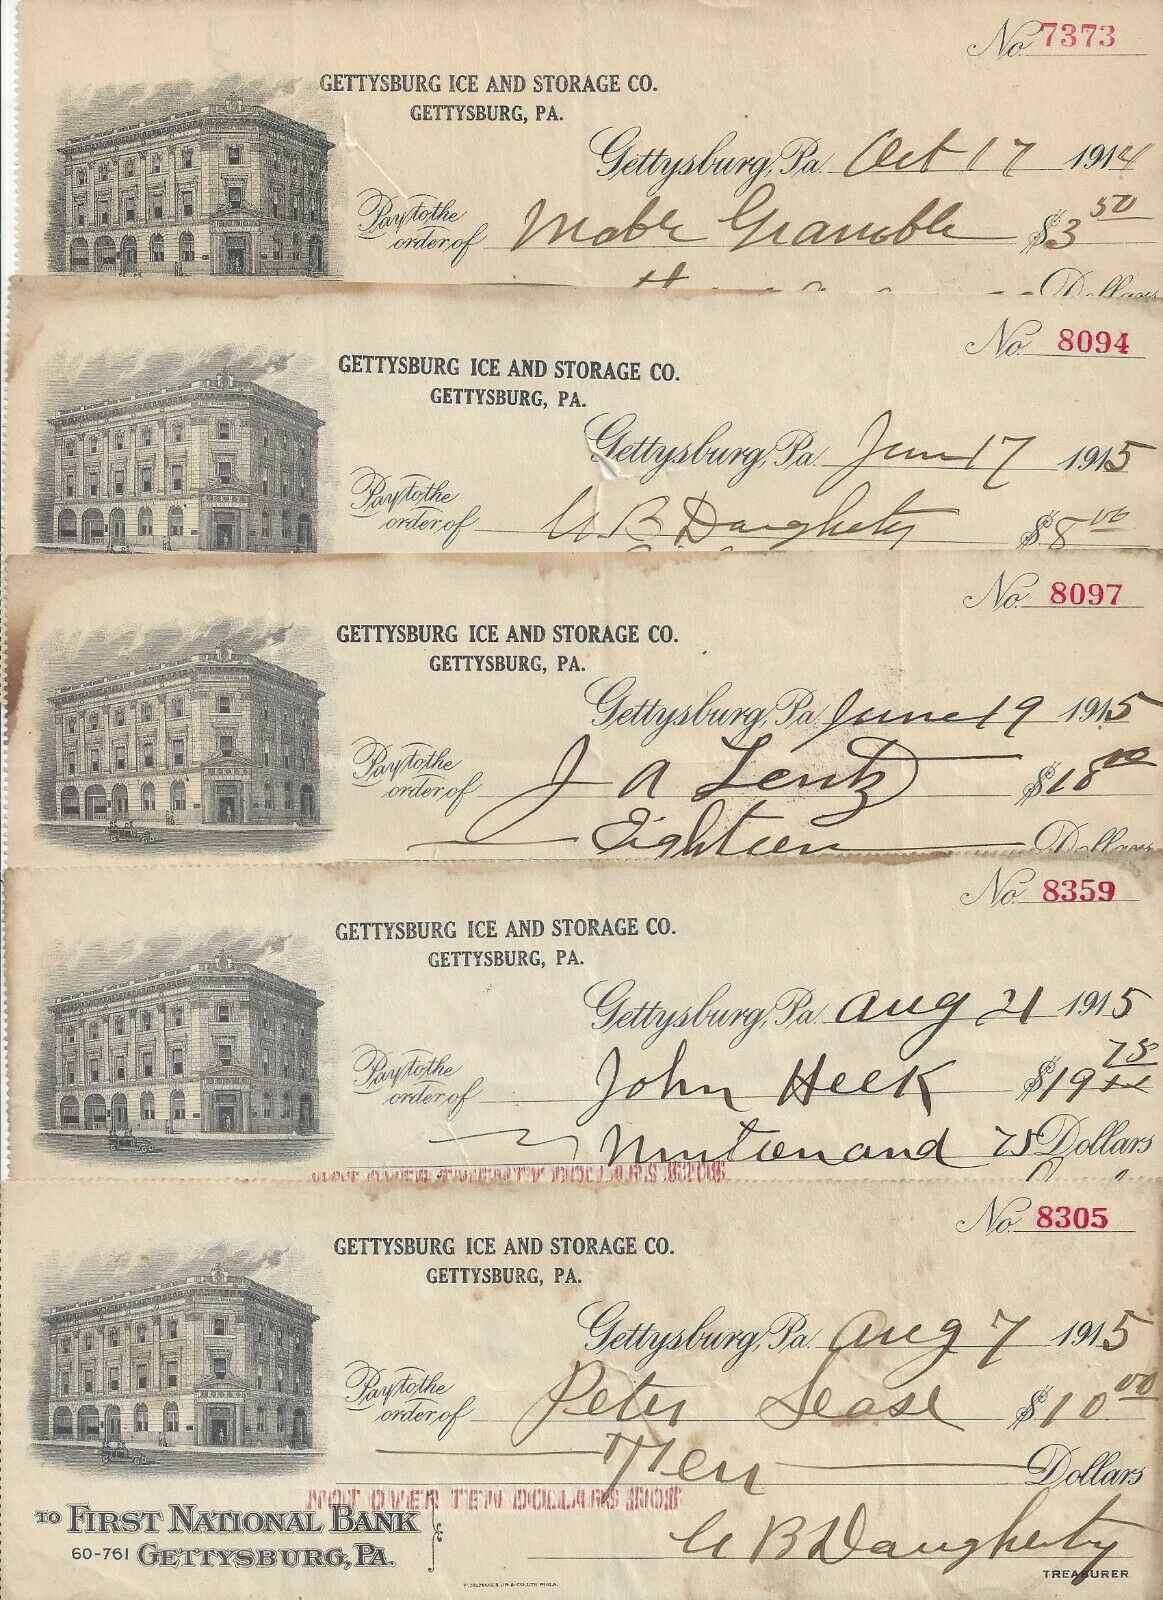 No. 7373
GETTYSBURG ICE AND STORAGE CO.
GETTYSBURG, PA.
Gettysburg, Pa. Oct 17 1914
Pay to the order of Mabl Gramble $3 50
Dollars
No. 8094
GETTYSBURG ICE AND STORAGE CO.
GETTYSBURG, PA.
Gettysburg, Pa. June 17 1915
Pay to the order of B Daugherty $8 00
No. 8097
GETTYSBURG ICE AND STORAGE CO.
GETTYSBURG, PA.
Gettysburg, Pa. June 19 1915
Pay to the order of J A Lentz $18 00
Eighteen Dollars
No. 8359
GETTYSBURG ICE AND STORAGE CO.
GETTYSBURG, PA.
Gettysburg, Pa. Aug 21 1915
Pay to the order of John Heek $19 75
Ninteen and 75 Dollars
NOT OVER TWENTY DOLLARS $20$
No. 8305
GETTYSBURG ICE AND STORAGE CO.
GETTYSBURG, PA.
Gettysburg, Pa. Aug 7 1915
Pay to the order of Peter Sease $10 00
Ten Dollars
NOT OVER TEN DOLLARS $10$
TO FIRST NATIONAL BANK
60-761 GETTYSBURG, PA.
B Daugherty
TREASURER